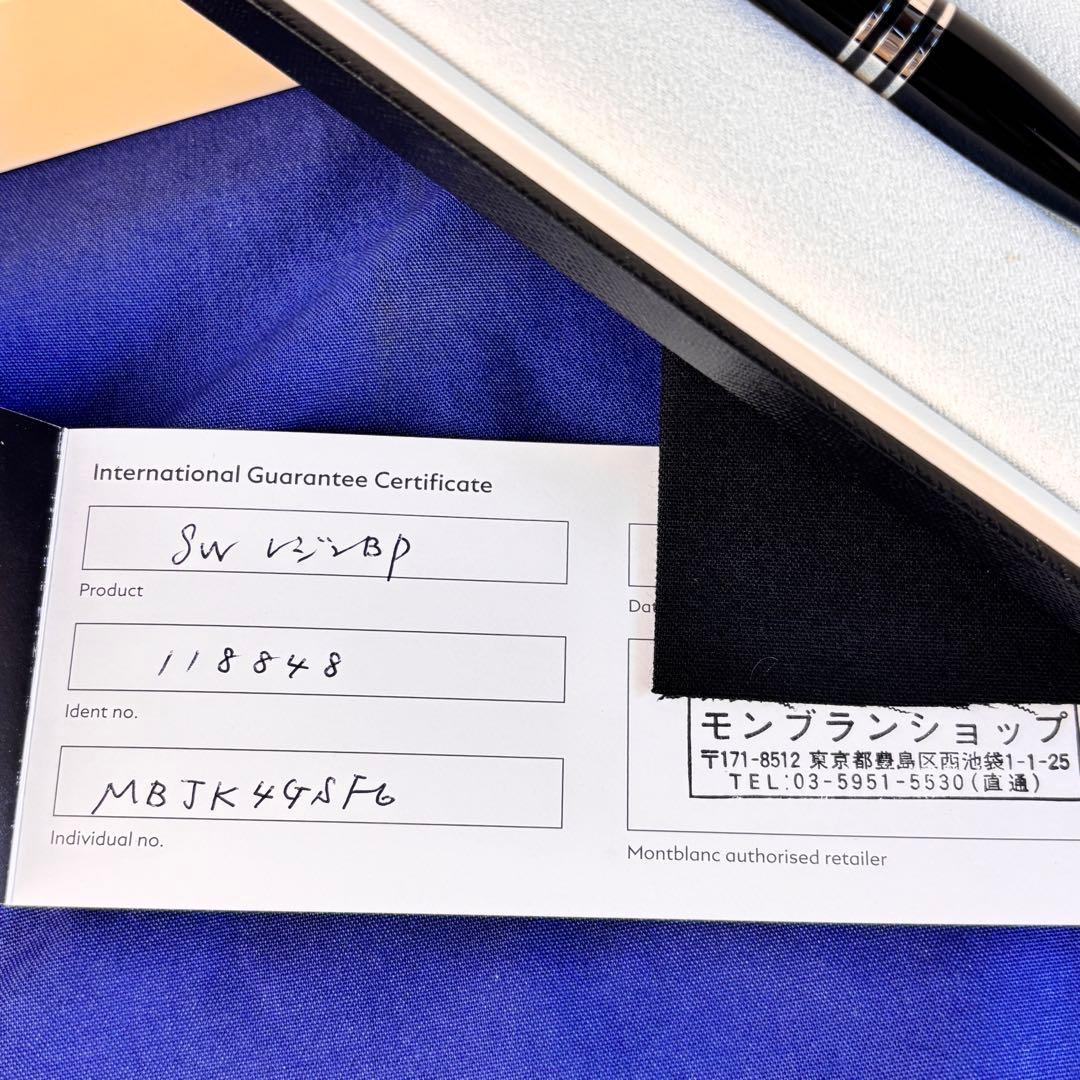 International Guarantee Certificate
SW レジンBP
Product
118848
Ident no.
MBJK4GSF6
Individual no.
モンブランショップ
〒171-8512 東京都豊島区西池袋1-1-25
TEL:03-5951-5530(直通)
Montblanc authorised retailer